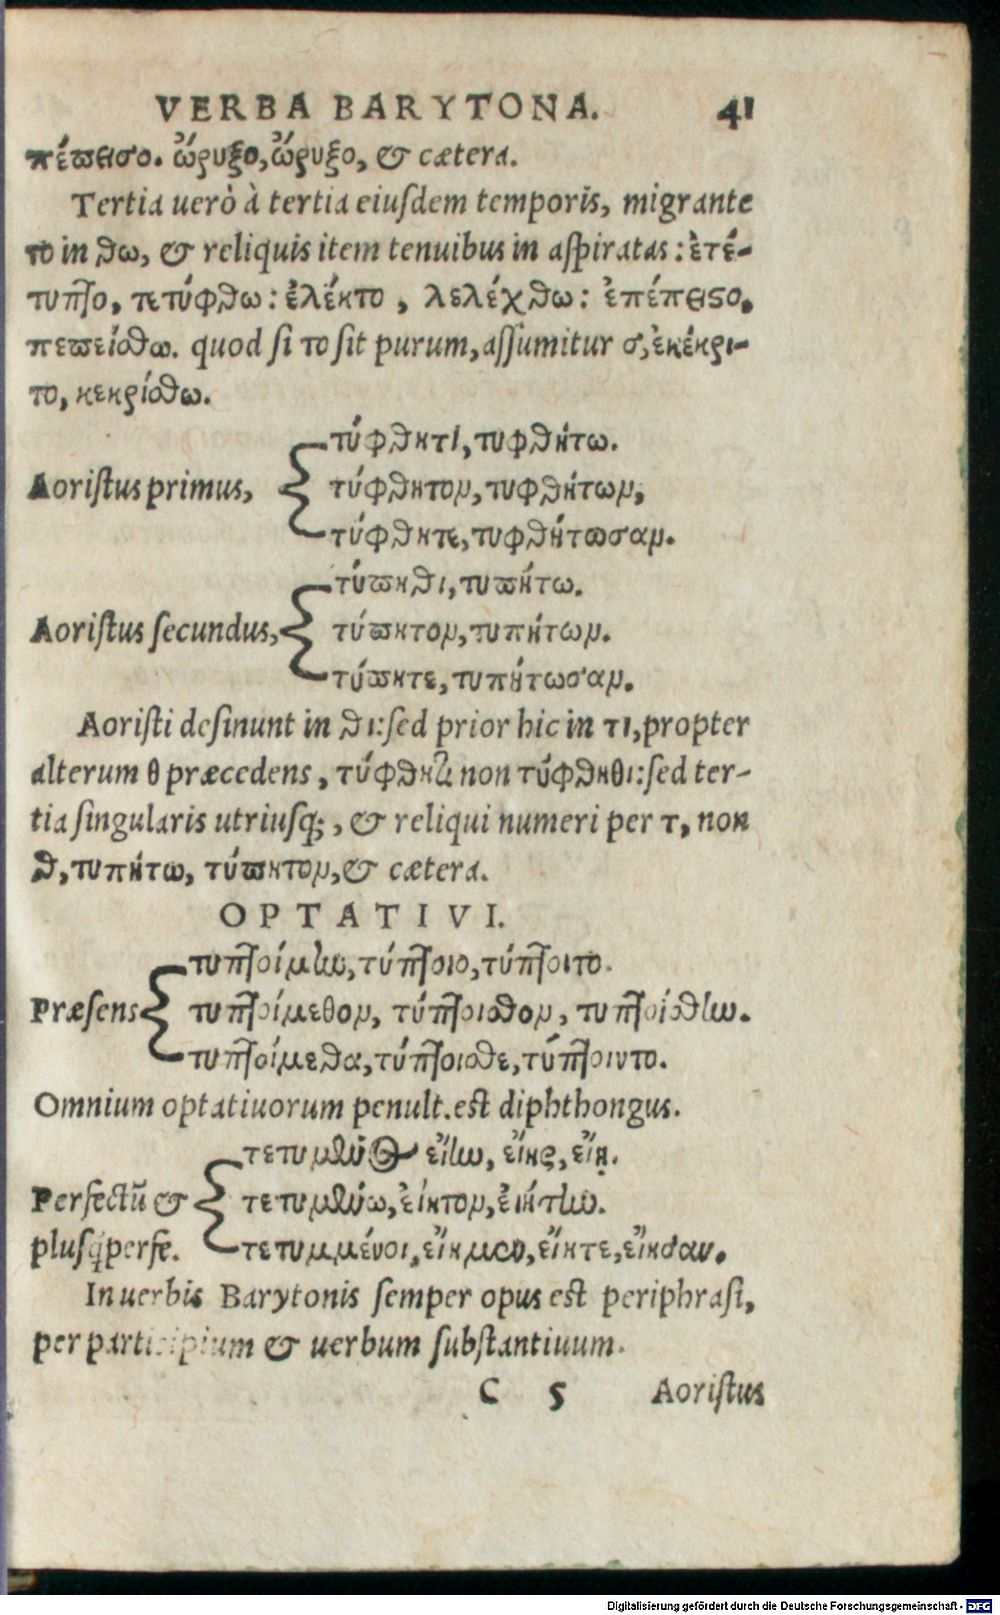 VERBA BARYTONA. 41
πέπεισο. ὤρυξο, ὤρυξο, & cætera.
Tertia uerò à tertia eiusdem temporis, migrante
το in θω, & reliquis item tenuibus in aspiratas: ἐτέ-
τυπτο, τετύφθω: ἐλέκτο, λελέχθω: ἐπέπειστο,
πεπείσθω. quod si το sit purum, assumitur σ, ἐκέκρι-
το, κεκρίσθω.
τύφθητι, τυφθήτω.
Aoristus primus, τύφθητον, τυφθήτων,
τύφθητε, τυφθήτωσαν.
τύπηθι, τυπήτω.
Aoristus secundus, τύπητον, τυπήτων.
τύπητε, τυπήτωσαν.
Aoristi desinunt in θι: sed prior hic in τι, propter
alterum θ præcedens, τύφθητι non τύφθηθι: sed ter-
tia singularis utriusq;, & reliqui numeri per τ, non
θ, τυπήτω, τύπητον, & cætera.
OPTATIVI.
τυπτοίμην, τύπτοιο, τύπτοιτο.
Præsens τυπτοίμεθον, τύπτοισθον, τυπτοίσθην.
τυπτοίμεθα, τύπτοισθε, τύπτοιντο.
Omnium optatiuorum penult. est diphthongus.
τετυμμένος εἴην, εἴης, εἴη.
Perfectũ & τετυμμένω, εἴητον, εἰήτην.
plusq̃perfe. τετυμμένοι, εἴημεν, εἴητε, εἴησαν.
In uerbis Barytonis semper opus est periphrasi,
per participium & uerbum substantiuum.
C 5 Aoristus
Digitalisierung gefördert durch die Deutsche Forschungsgemeinschaft - DFG